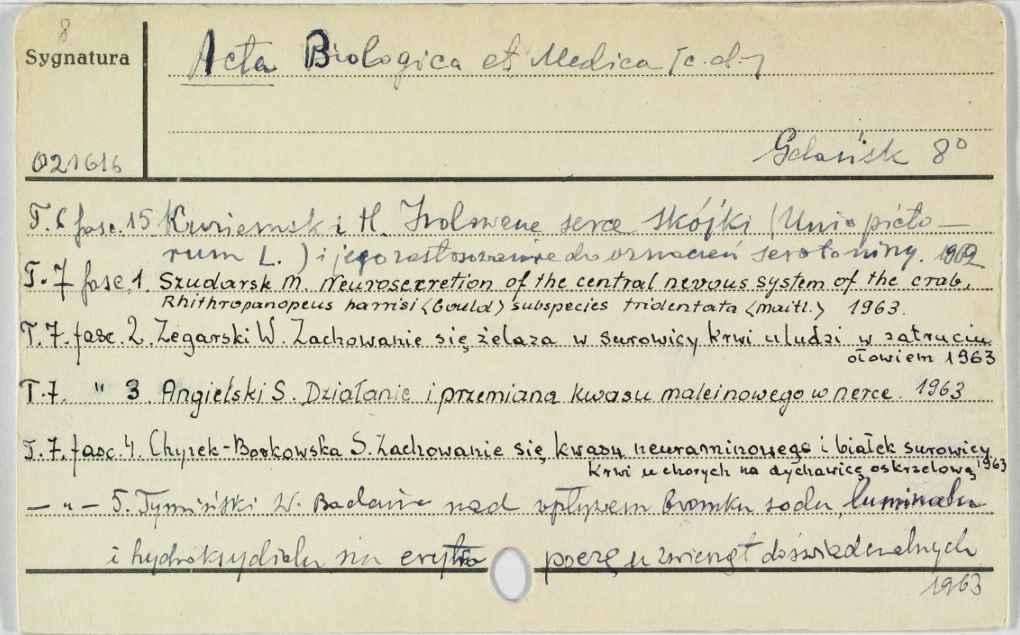 8
Sygnatura
Acta Biologica et Medica [c.d.]
021616
Gdańsk 8°
T. 6 fasc. 15 H. Izolowane serce skójki (Unio picto-
rum L.) i jego zastosowanie do oznaczeń serotoniny. 1962
T. 7 fasc. 1. Szudarsk M. Neurosecretion of the central nevous system of the crab,
Rhithropanopeus harrisi (Gould) subspecies tridentata (Maitl.) 1963.
T. 7. fasc. 2. Zegarski W. Zachowanie się żelaza w surowicy krwi u ludzi w zatruciu
ołowiem 1963
T. 7. " 3 Angielski S. Działanie i przemiana kwasu maleinowego w nerce. 1963
T. 7. fasc. 4. Chyrek-Borkowska S. Zachowanie się kwasu neuraminowego i białek surowicy
krwi u chorych na dychawicę oskrzelową 1963
— " — 5. Tymiński W. Badania nad wpływem bromku sodu, luminalu
i hydroksydialu na erytro poezę u zwierząt doświadczalnych
1963